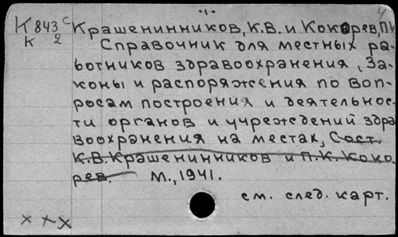 -1-
К 843 с Крашенинников, К.В. и Кокорев, П.К.
к 2 Справочник для местных ра-
ботников здравоохранения, За-
коны и распоряжения по воп-
росам построения и деятельнос-
ти органов и учреждений здра
воохранения на местах, Сост.
К.В. Крашенинников и П.К. Коко
рев. М., 1941.
см. след. карт.
х х х